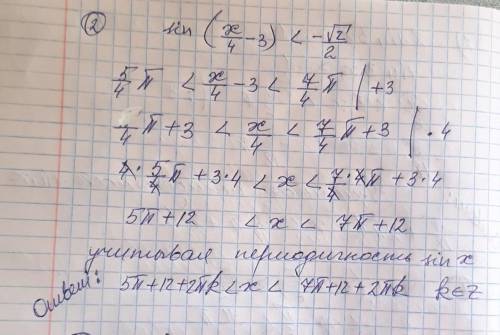 ② sin (x/4 - 3) < -√2/2
5/4 π < x/4 - 3 < 7/4 π | +3
/4 π + 3 < x/4 < 7/4 π + 3 | · 4
4 · 5/4 π + 3·4 < x < 7/4 · 4π + 3·4
5π + 12 < x < 7π + 12
учитывая периодичность sin x
Ответ: 5π + 12 + 2πk < x < 7π + 12 + 2πk k ∈ Z